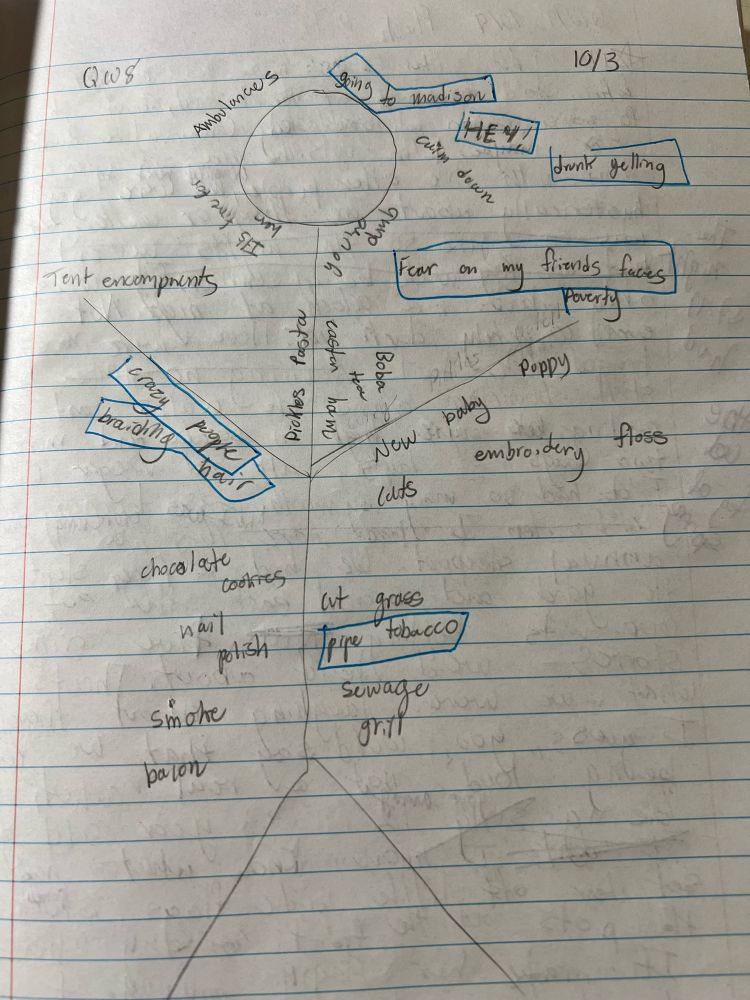 QW8
10/3
Ambulances
going to madison
HEY!
calm down
drunk yelling
It's time for
her
you're
dump
Fear on my friends faces
Tent encompments
Poverty
Pickles Pasta
away
tea
Boba
crazy people
braiding hair
New baby poppy
embroidery floss
cats
chocolate
cookies
cut grass
nail
polish
pipe tobacco
sewage
smoke
grill
bacon